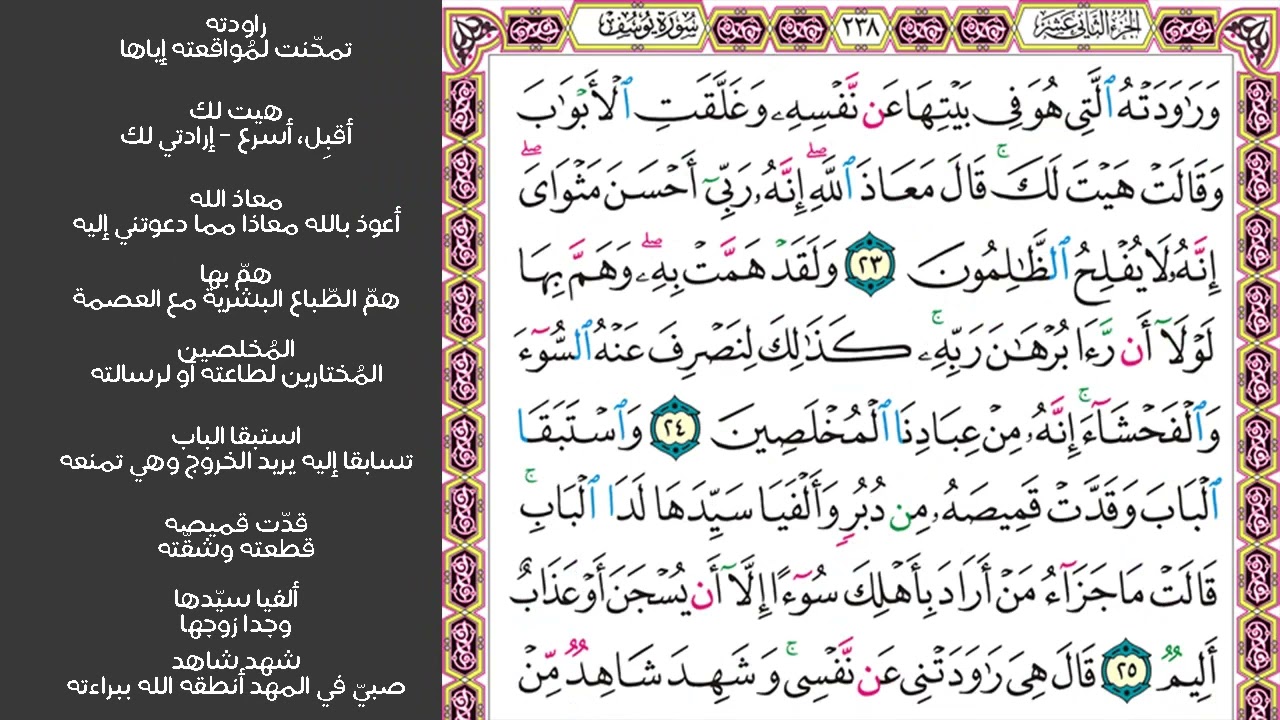 الجزء الثاني عشر
٢٣٨
سورة يوسف
وَرَٰوَدَتْهُ ٱلَّتِى هُوَ فِى بَيْتِهَا عَن نَّفْسِهِۦ وَغَلَّقَتِ ٱلْأَبْوَٰبَ
وَقَالَتْ هَيْتَ لَكَ ۚ قَالَ مَعَاذَ ٱللَّهِ ۖ إِنَّهُۥ رَبِّىٓ أَحْسَنَ مَثْوَاىَ ۖ
إِنَّهُۥ لَا يُفْلِحُ ٱلظَّٰلِمُونَ ٢٣ وَلَقَدْ هَمَّتْ بِهِۦ ۖ وَهَمَّ بِهَا
لَوْلَآ أَن رَّءَا بُرْهَٰنَ رَبِّهِۦ ۚ كَذَٰلِكَ لِنَصْرِفَ عَنْهُ ٱلسُّوٓءَ
وَٱلْفَحْشَآءَ ۚ إِنَّهُۥ مِنْ عِبَادِنَا ٱلْمُخْلَصِينَ ٢٤ وَٱسْتَبَقَا
ٱلْبَابَ وَقَدَّتْ قَمِيصَهُۥ مِن دُبُرٍ وَأَلْفَيَا سَيِّدَهَا لَدَا ٱلْبَابِ ۚ
قَالَتْ مَا جَزَآءُ مَنْ أَرَادَ بِأَهْلِكَ سُوٓءًا إِلَّآ أَن يُسْجَنَ أَوْ عَذَابٌ
أَلِيمٌ ٢٥ قَالَ هِىَ رَٰوَدَتْنِى عَن نَّفْسِى ۚ وَشَهِدَ شَاهِدٌ مِّنْ
راودته
تمحّنت لمُواقعته إياها
هيت لك
أقبِل، أسرع - إرادتي لك
معاذ الله
أعوذ بالله معاذا مما دعوتني إليه
همّ بها
همّ الطّباع البشرية مع العصمة
المُخلصين
المُختارين لطاعته أو لرسالته
استبقا الباب
تسابقا إليه يريد الخروج وهي تمنعه
قدّت قميصه
قطعته وشقّته
ألفيا سيّدها
وجدا زوجها
شهد شاهد
صبيّ في المهد أنطقه الله ببراءته